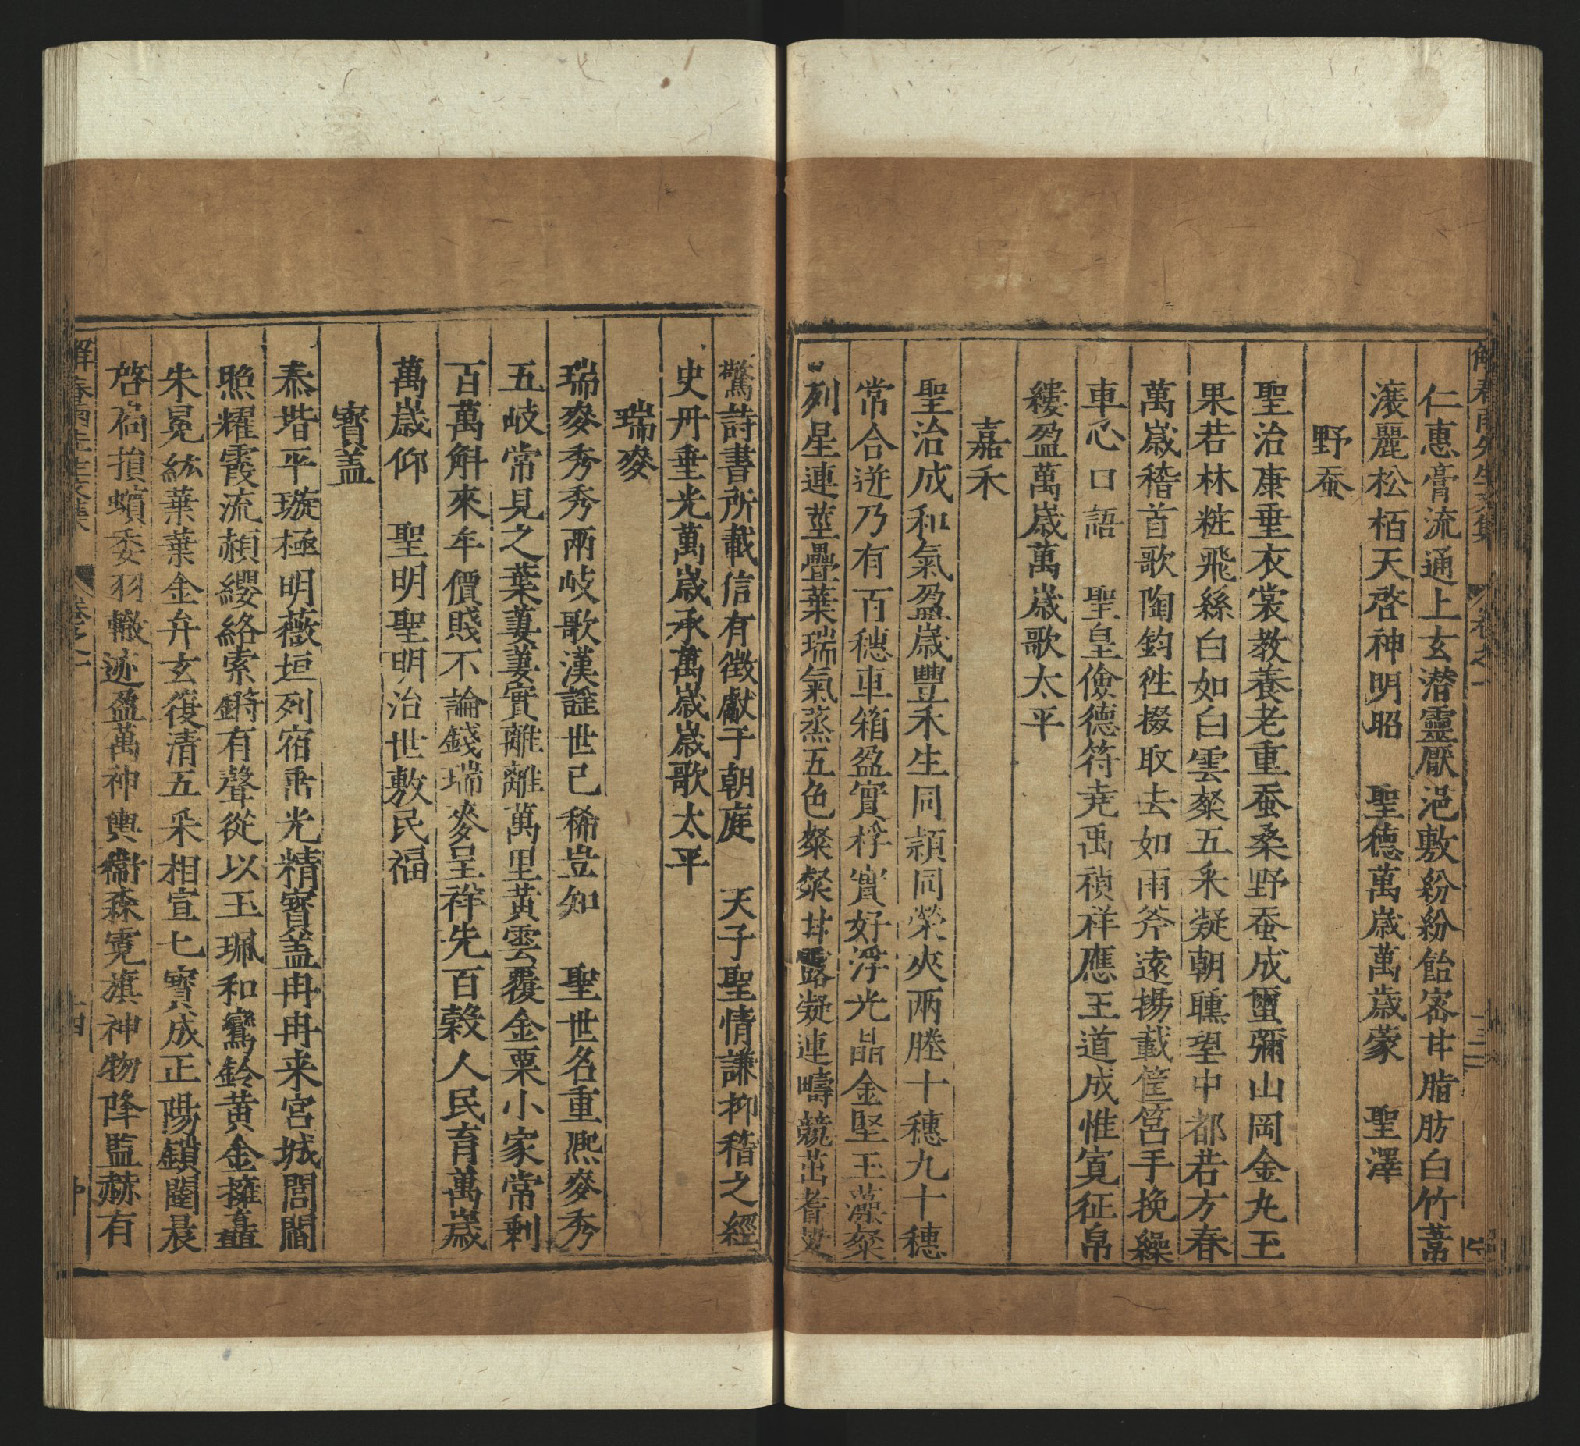 仁惠膏流通上玄潜靈厭浥敷紛紛飴密甘脂肪白竹葦
瀼麗松栢天啓神明昭　聖德萬歲萬歲蒙　聖澤
野蚕
聖治康垂衣裳教養老重蚕桑野蚕成璽彌山岡金丸玉
果若林粧飛絲白如白雲粲五采凝朝曛望中都若方春
萬歲稽首歌陶鈞徃掇取去如雨斧遠揚載筐筥手挽繰
車心口語　聖皇儉德符堯禹禎祥應王道成惟寛征帛
縷盈萬歲萬歲歌太平
嘉禾
聖治成和氣盈歲豐禾生同穎同榮夾兩塍十穗九十穗
常合迸乃有百穗車箱盈實桴實好浮光晶金堅玉藻粲
列星連莖疊葉瑞氣蒸五色粲粲甘露凝連疇競茁者叟
驚詩書所載信有徵獻于朝庭　天子聖情謙抑稽之經
史冊垂光萬歲承萬歲歲歌太平
瑞麥
瑞麥秀秀兩岐歌漢謡世已稀豈知　聖世名重熈麥秀
五岐常見之葉萋萋實離離萬里黃雲覆金粟小家常剩
百萬斛來牟價賤不論錢瑞麥呈祥先百穀人民育萬歲
萬歲仰　聖明聖明治世敷民福
寶蓋
泰堦平璇極明薇垣列宿耑光精寶蓋冉冉来宮城閶闔
照耀霞流頳纓絡索鏘有聲從以玉珮和鸞鈴黄金擁矗
朱冕紘葉葉金弁玄復清五采相宣七寳成正陽鎖闥晨
啓扃揁蠂委羽轍迹盈萬神輿衞森霓旗神物降監赫有
解春雨先生文集
卷之一